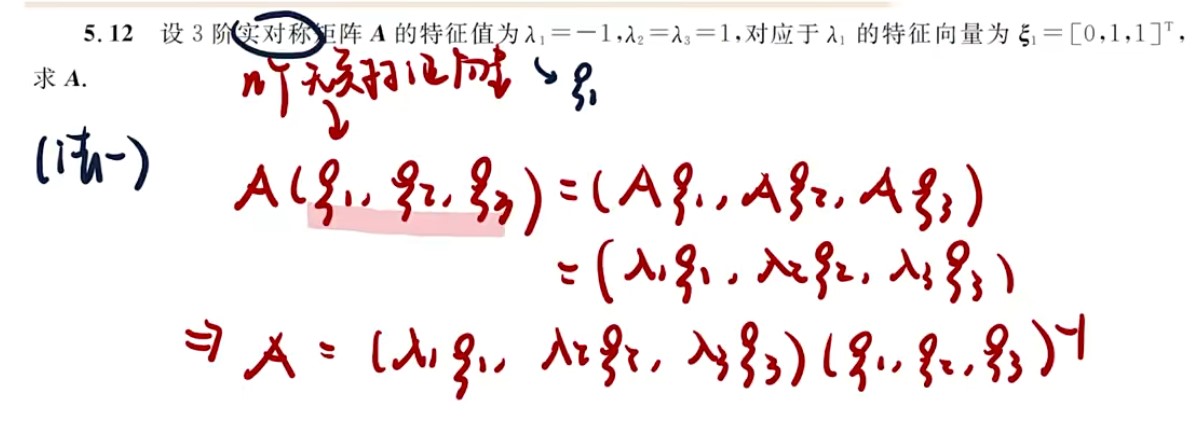 5.12 设3阶实对称矩阵 A 的特征值为 λ₁=-1,λ₂=λ₃=1,对应于 λ₁ 的特征向量为 ξ₁=[0,1,1]ᵀ,
求 A.
n个无关特征向量 ↘ ξ₁
↓
(法一)
A(ξ₁, ξ₂, ξ₃) = (Aξ₁, Aξ₂, Aξ₃)
= (λ₁ξ₁, λ₂ξ₂, λ₃ξ₃)
⇒ A = (λ₁ξ₁, λ₂ξ₂, λ₃ξ₃)(ξ₁, ξ₂, ξ₃)⁻¹